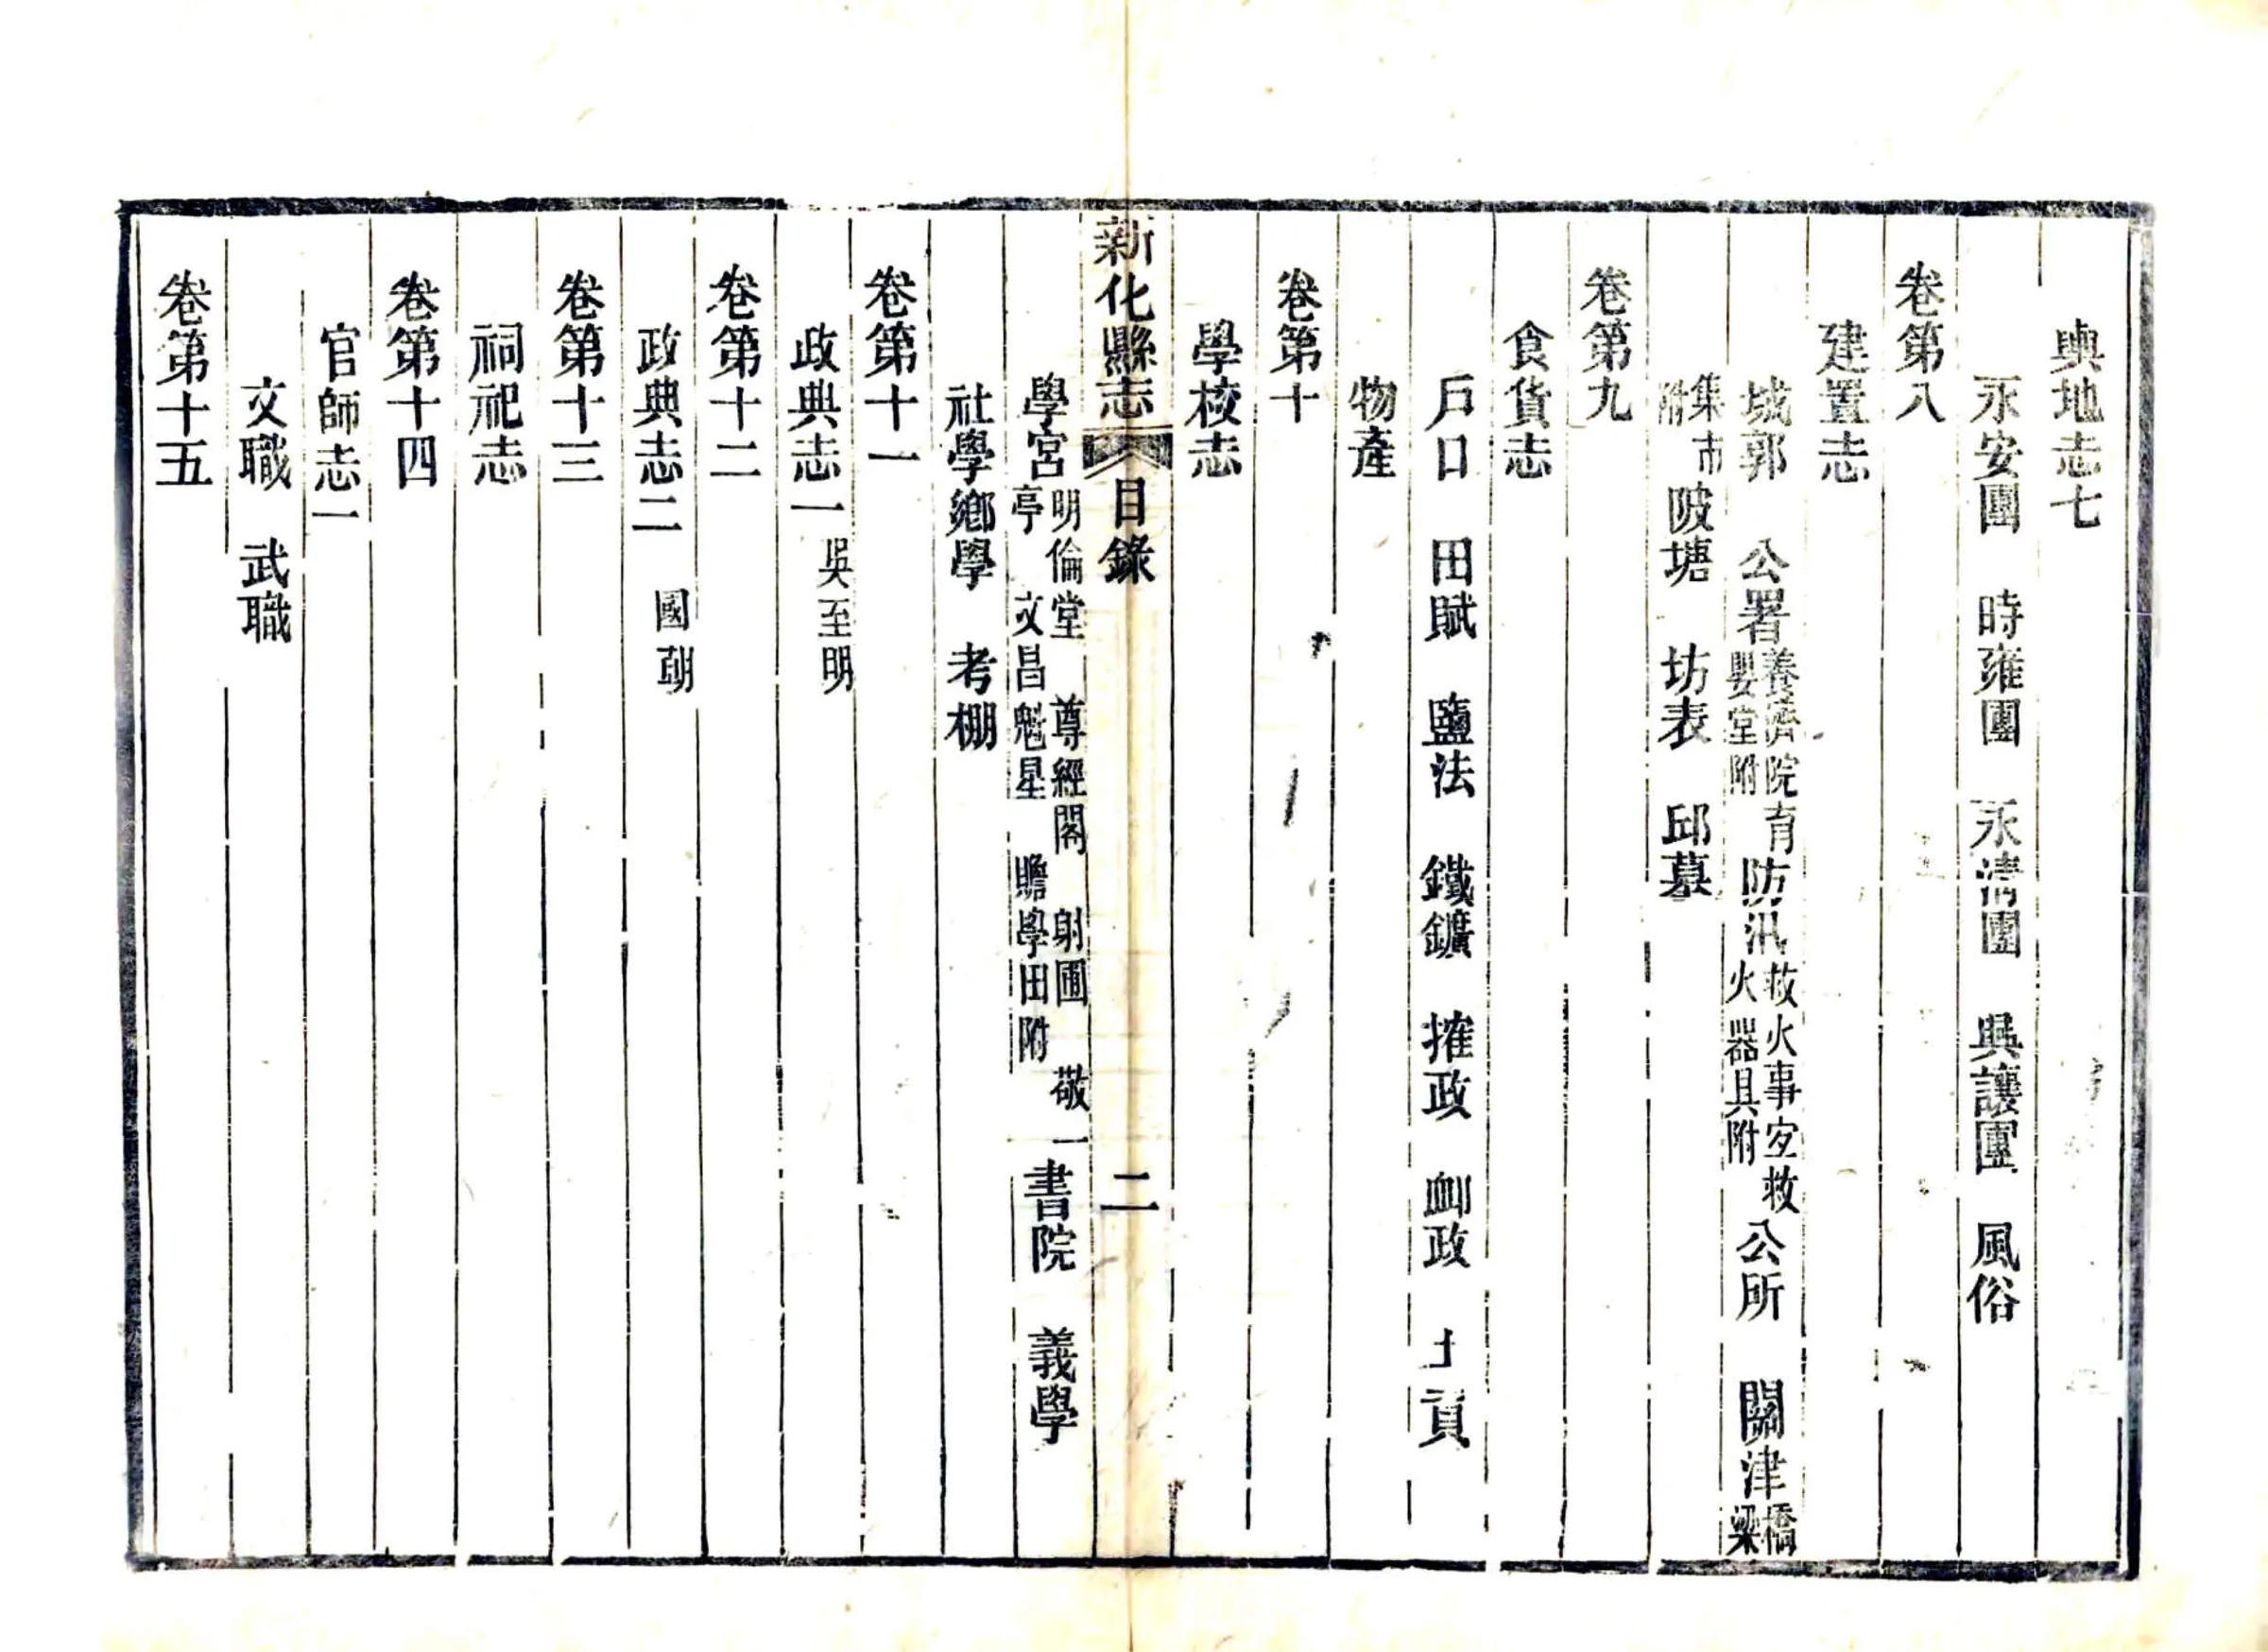 輿地志七
永安團　時雍團　永清團　興讓團　風俗
卷第八
建置志
城郭　公署養濟院育嬰堂附　防汛救火事宜救火器具附　公所　關津橋梁
集市附　陂塘　坊表　邱墓
卷第九
食貨志
戶口　田賦　鹽法　鐵鑛　搉政　卹政　土貢
物產
卷第十
學校志
新化縣志　目錄　二
學宮明倫堂　尊經閣　射圃　敬一亭　文昌魁星　贍學田附　書院　義學
社學鄉學　考棚
卷第十一
政典志一　吳至明
卷第十二
政典志二　國朝
卷第十三
祠祀志
卷第十四
官師志一
文職　武職
卷第十五